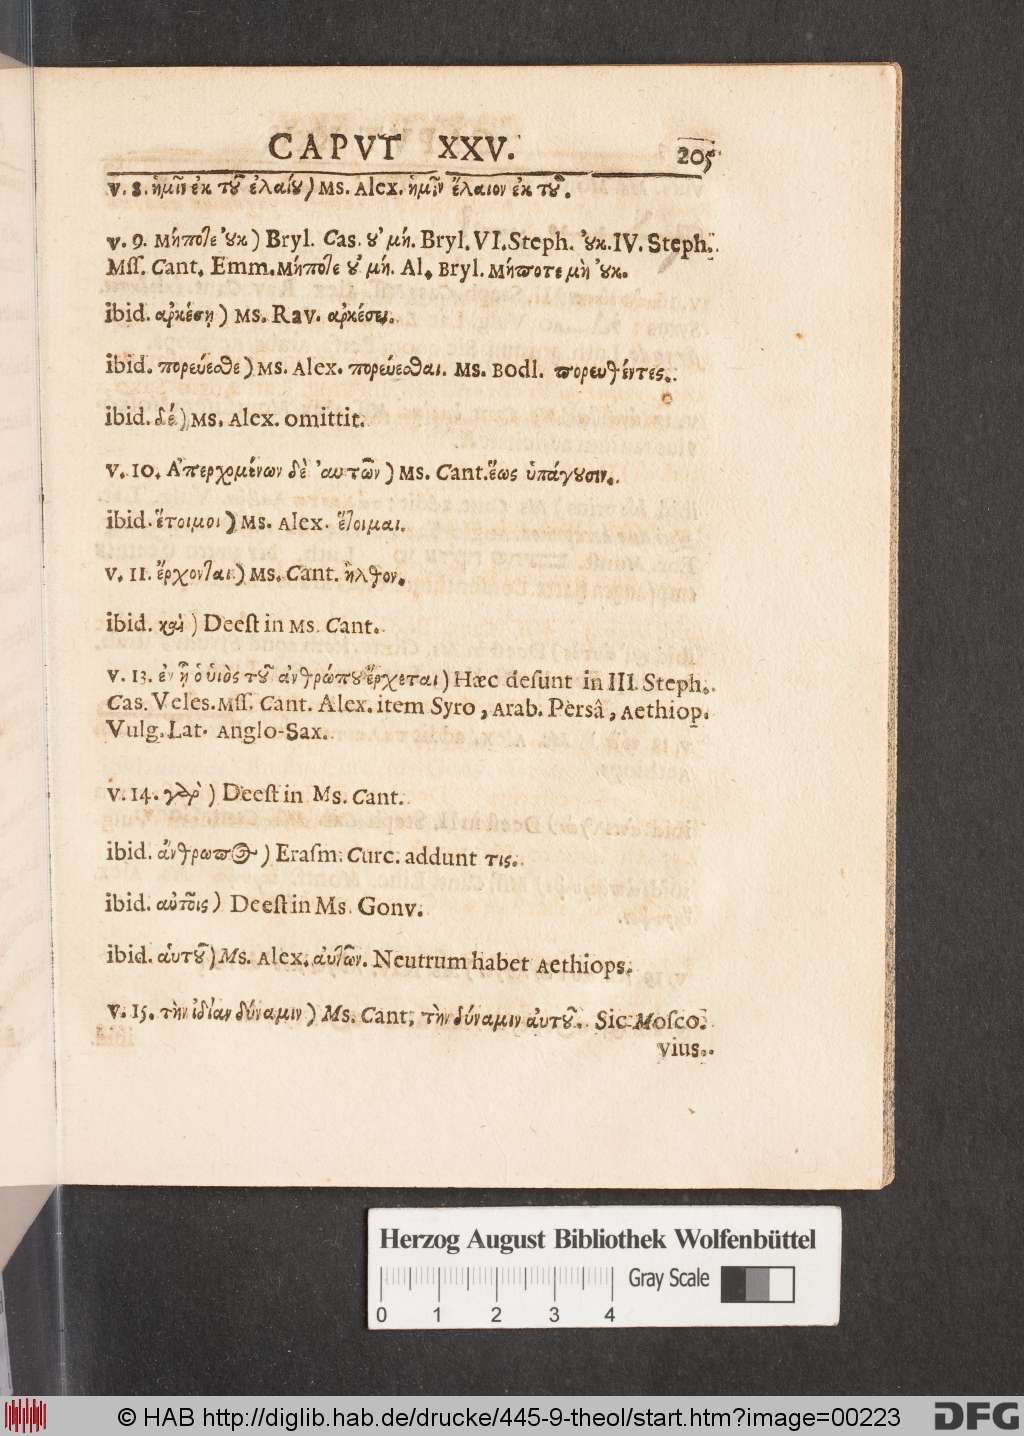 CAPVT XXV. 205
v. 8. ἡμῖν ἐκ τȣ͂ ἐλαίȣ) Ms. Alex. ἡμῖν ἔλαιον ἐκ τȣ͂.
v. 9. Μήποτε ȣ̓κ) Bryl. Cas. ȣ̓ μή. Bryl. VI. Steph. ȣ̓κ. IV. Steph.
Mſſ. Cant. Emm. Μήποτε ȣ̓ μή. Al. Bryl. Μήποτε μὴ ȣ̓κ.
ibid. ἀρκέσῃ) Ms. Rav. ἀρκέσει.
ibid. πορεύεσθε) Ms. Alex. πορεύεσθαι. Ms. Bodl. πορευθέντες.
ibid. δέ) Ms. Alex. omittit.
v. 10. Ἀπερχομένων δὲ αὐτῶν) Ms. Cant. ἕως ὑπάγȣσιν.
ibid. ἕτοιμοι) Ms. Alex. ἕτοιμαι.
v. 11. ἔρχονται) Ms. Cant. ἦλθον.
ibid. καὶ) Deeſt in Ms. Cant.
v. 13. ἐν ᾗ ὁ ὑιὸς τȣ͂ ἀνθρώπȣ ἔρχεται) Hæc deſunt in III. Steph.
Cas. Veles. Mſſ. Cant. Alex. item Syro, Arab. Persâ, Aethiop.
Vulg. Lat. Anglo-Sax.
v. 14. γὰρ) Deeſt in Ms. Cant.
ibid. ἄνθρωπος) Eraſm. Curc. addunt τις.
ibid. αὐτοῖς) Deeſt in Ms. Gonv.
ibid. ἁυτȣ͂) Ms. Alex. ἀυτῶν. Neutrum habet Aethiops.
v. 15. τὴν ἰδίαν δύναμιν) Ms. Cant. τὴν δύναμιν ἀυτȣ͂. Sic Moſco-
vius.
Herzog August Bibliothek Wolfenbüttel
Gray Scale
0 1 2 3 4
© HAB http://diglib.hab.de/drucke/445-9-theol/start.htm?image=00223 DFG